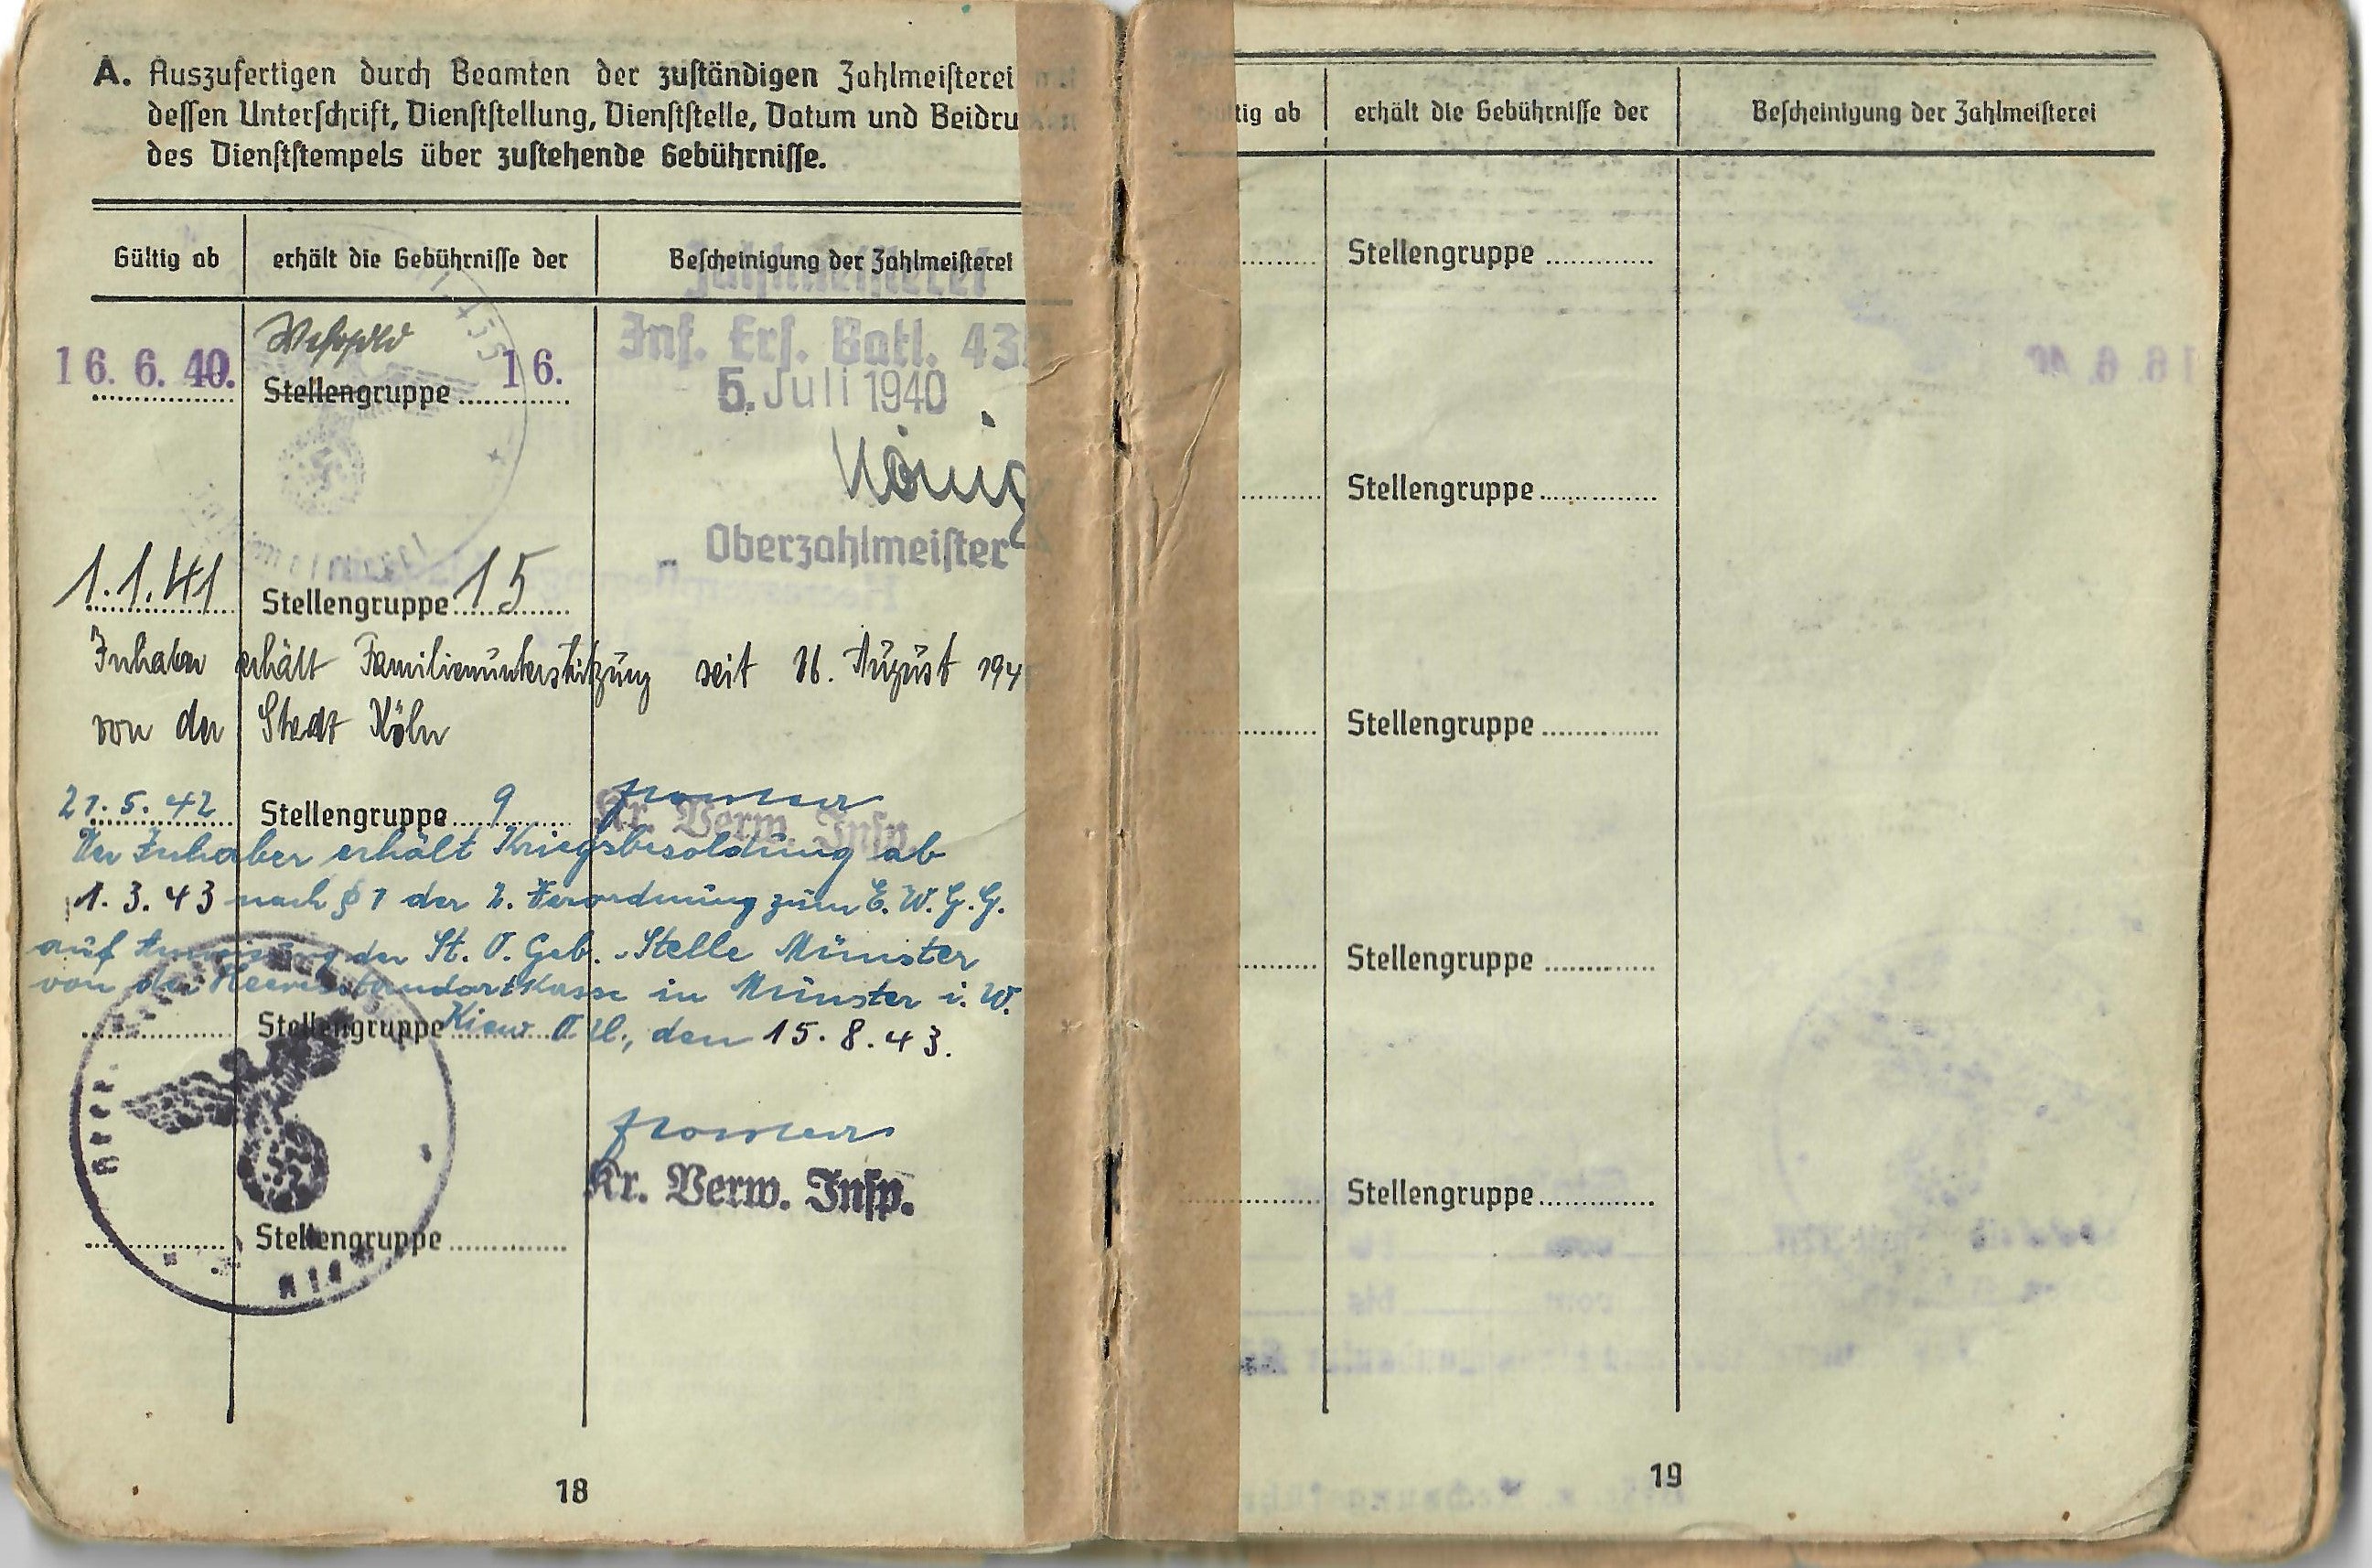 A. Auszufertigen durch Beamten der zuständigen Zahlmeisterei
dessen Unterschrift, Dienststellung, Dienststelle, Datum und Beidru
des Dienststempels über zustehende Gebührnisse.
Gültig ab erhält die Gebührnisse der Bescheinigung der Zahlmeisterei
Zahlmeisterei
Inf. Ers. Batl. 43
16. 6. 40. Stellengruppe 16.
5. Juli 1940
König
Oberzahlmeister
1.1.41 Stellengruppe 15
Inhaber erhält Familienunterstützung seit 16. August 194
von der Stadt Köln
21.5.42 Stellengruppe 9
Kr. Verw. Insp.
Der Inhaber erhält Kriegsbesoldung ab
1.3.43 nach § 1 der 2. Verordnung zum E.W.G.G.
auf Anweisung der St. O. Geb. Stelle Münster
von der Heeresstandortkasse in Münster i. W.
Stellengruppe Kiew O.U., den 15.8.43.
Kr. Verw. Insp.
Stellengruppe
18
tig ab erhält die Gebührnisse der Bescheinigung der Zahlmeisterei
Stellengruppe
Stellengruppe
Stellengruppe
Stellengruppe
Stellengruppe
19